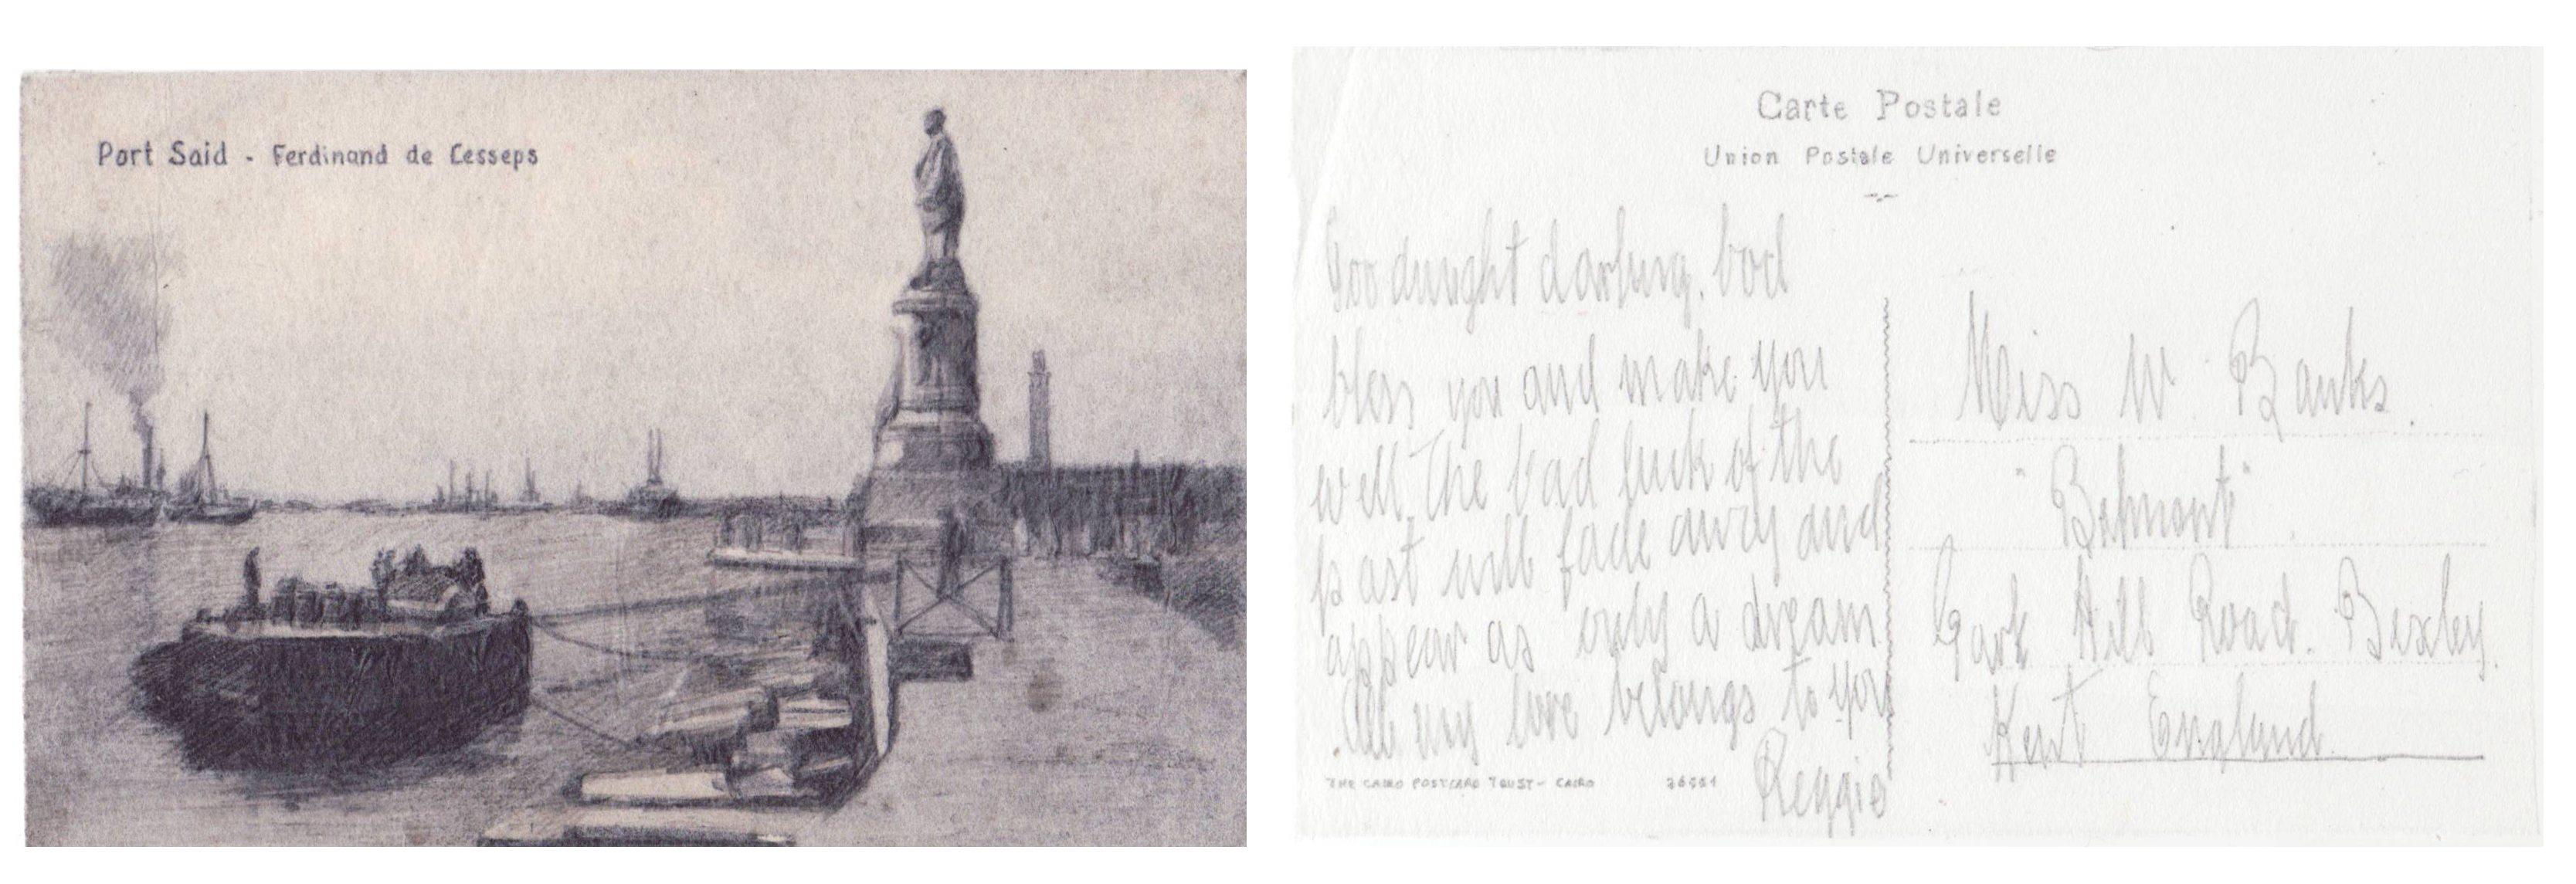 Port Said - Ferdinand de Lesseps
Carte Postale
Union Postale Universelle
Goodnight darling. God
bless you and make you
well. The bad luck of the
past will fade away and
appear as only a dream.
All my love belongs to you
Reggie
THE CAIRO POSTCARD TRUST - CAIRO
Miss W. Banks.
"Belmont"
Park Hill Road. Bexley.
Kent England